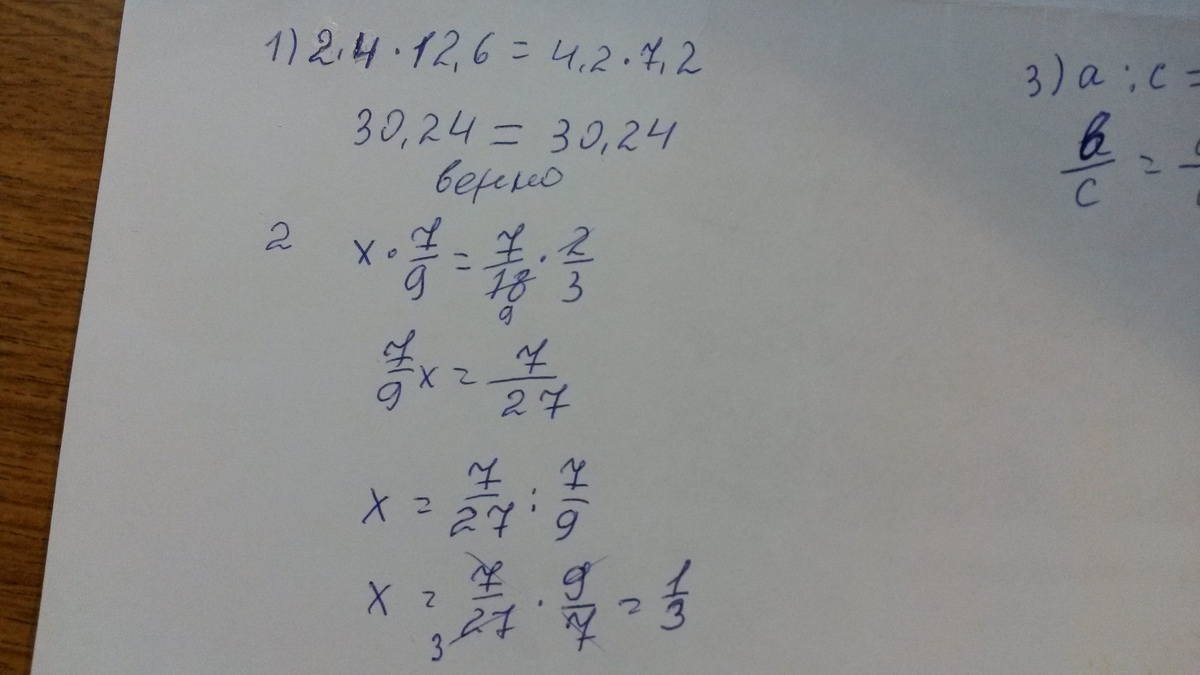 1) 2,4 · 12,6 = 4,2 · 7,2
30,24 = 30,24
верно
2 x · 7/9 = 7/18 · 2/3
9
7/9 x = 7/27
x = 7/27 : 7/9
x = 7/27 · 9/7 = 1/3
3
3) a : c =
в/c =